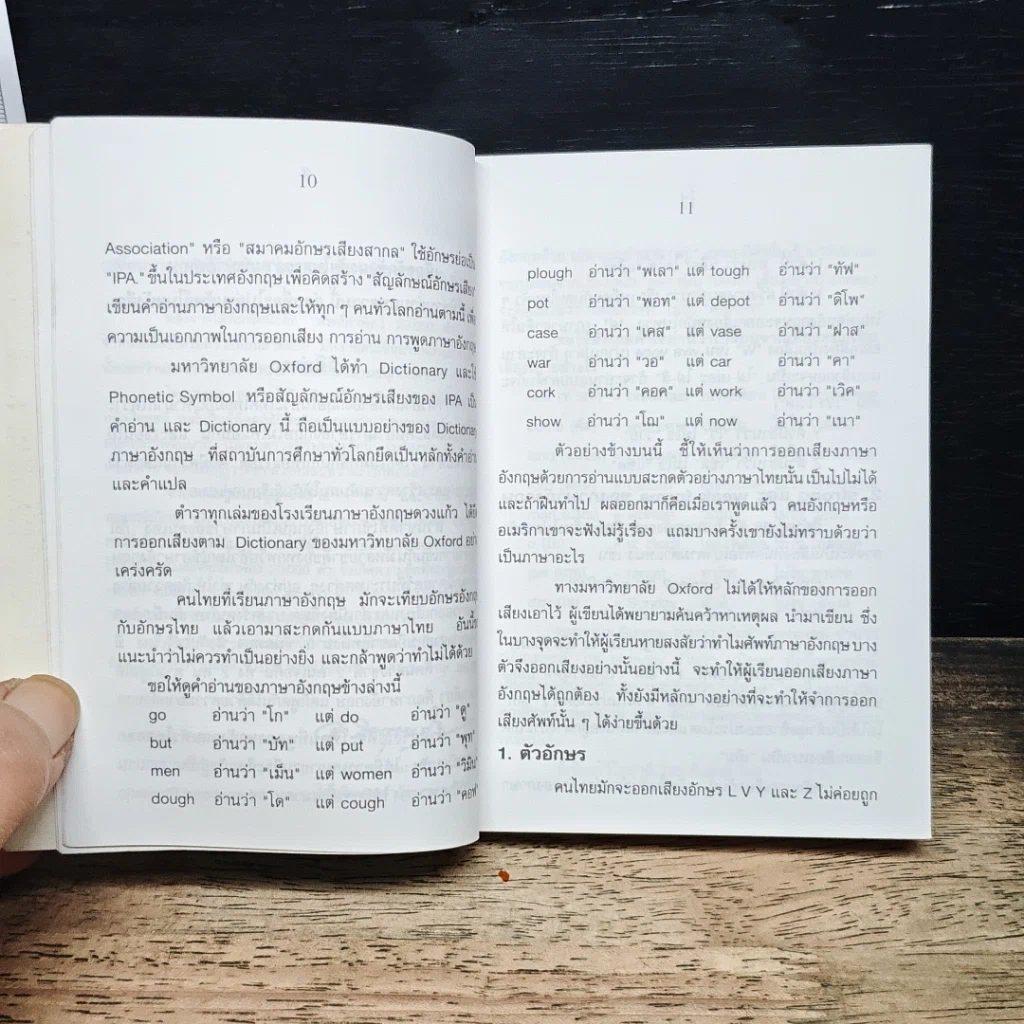 10
Association" หรือ "สมาคมอักษรเสียงสากล" ใช้อักษรย่อเป็น
"IPA." ขึ้นในประเทศอังกฤษ เพื่อคิดสร้าง "สัญลักษณ์อักษรเสียง"
เขียนคำอ่านภาษาอังกฤษและให้ทุก ๆ คนทั่วโลกอ่านตามนี้ เพื่อ
ความเป็นเอกภาพในการออกเสียง การอ่าน การพูดภาษาอังกฤษ
มหาวิทยาลัย Oxford ได้ทำ Dictionary และใช้
Phonetic Symbol หรือสัญลักษณ์อักษรเสียงของ IPA เป็น
คำอ่าน และ Dictionary นี้ ถือเป็นแบบอย่างของ Dictionary
ภาษาอังกฤษ ที่สถาบันการศึกษาทั่วโลกยึดเป็นหลักทั้งคำอ่าน
และคำแปล
ตำราทุกเล่มของโรงเรียนภาษาอังกฤษดวงแก้ว ได้ยึด
การออกเสียงตาม Dictionary ของมหาวิทยาลัย Oxford อย่าง
เคร่งครัด
คนไทยที่เรียนภาษาอังกฤษ มักจะเทียบอักษรอังกฤษ
กับอักษรไทย แล้วเอามาสะกดกันแบบภาษาไทย อันนี้ขอ
แนะนำว่าไม่ควรทำเป็นอย่างยิ่ง และกล้าพูดว่าทำไม่ได้ด้วย
ขอให้ดูคำอ่านของภาษาอังกฤษข้างล่างนี้
go อ่านว่า "โก" แต่ do อ่านว่า "ดู"
but อ่านว่า "บัท" แต่ put อ่านว่า "พุท"
men อ่านว่า "เม็น" แต่ women อ่านว่า "วิมิน"
dough อ่านว่า "โด" แต่ cough อ่านว่า "คอฟ"
11
plough อ่านว่า "พเลา" แต่ tough อ่านว่า "ทัฟ"
pot อ่านว่า "พอท" แต่ depot อ่านว่า "ดิโพ"
case อ่านว่า "เคส" แต่ vase อ่านว่า "ฝาส"
war อ่านว่า "วอ" แต่ car อ่านว่า "คา"
cork อ่านว่า "คอค" แต่ work อ่านว่า "เวิค"
show อ่านว่า "โฌ" แต่ now อ่านว่า "เนา"
ตัวอย่างข้างบนนี้ ชี้ให้เห็นว่าการออกเสียงภาษา
อังกฤษด้วยการอ่านแบบสะกดตัวอย่างภาษาไทยนั้น เป็นไปไม่ได้
และถ้าฝืนทำไป ผลออกมาก็คือเมื่อเราพูดแล้ว คนอังกฤษหรือ
อเมริกาเขาจะฟังไม่รู้เรื่อง แถมบางครั้งเขายังไม่ทราบด้วยว่า
เป็นภาษาอะไร
ทางมหาวิทยาลัย Oxford ไม่ได้ให้หลักของการออก
เสียงเอาไว้ ผู้เขียนได้พยายามค้นคว้าหาเหตุผล นำมาเขียน ซึ่ง
ในบางจุดจะทำให้ผู้เรียนหายสงสัยว่าทำไมศัพท์ภาษาอังกฤษ บาง
ตัวจึงออกเสียงอย่างนั้นอย่างนี้ จะทำให้ผู้เรียนออกเสียงภาษา
อังกฤษได้ถูกต้อง ทั้งยังมีหลักบางอย่างที่จะทำให้จำการออก
เสียงศัพท์นั้น ๆ ได้ง่ายขึ้นด้วย
1. ตัวอักษร
คนไทยมักจะออกเสียงอักษร L V Y และ Z ไม่ค่อยถูก